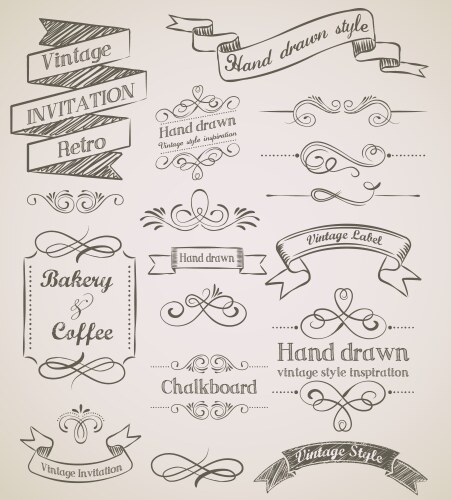 Vintage
INVITATION
Retro
Hand drawn style
Hand drawn
Vintage style inspiration
Vintage Label
Hand drawn
Bakery
&
Coffee
Hand drawn
vintage style inspiration
Chalkboard
Vintage Invitation
Vintage Style